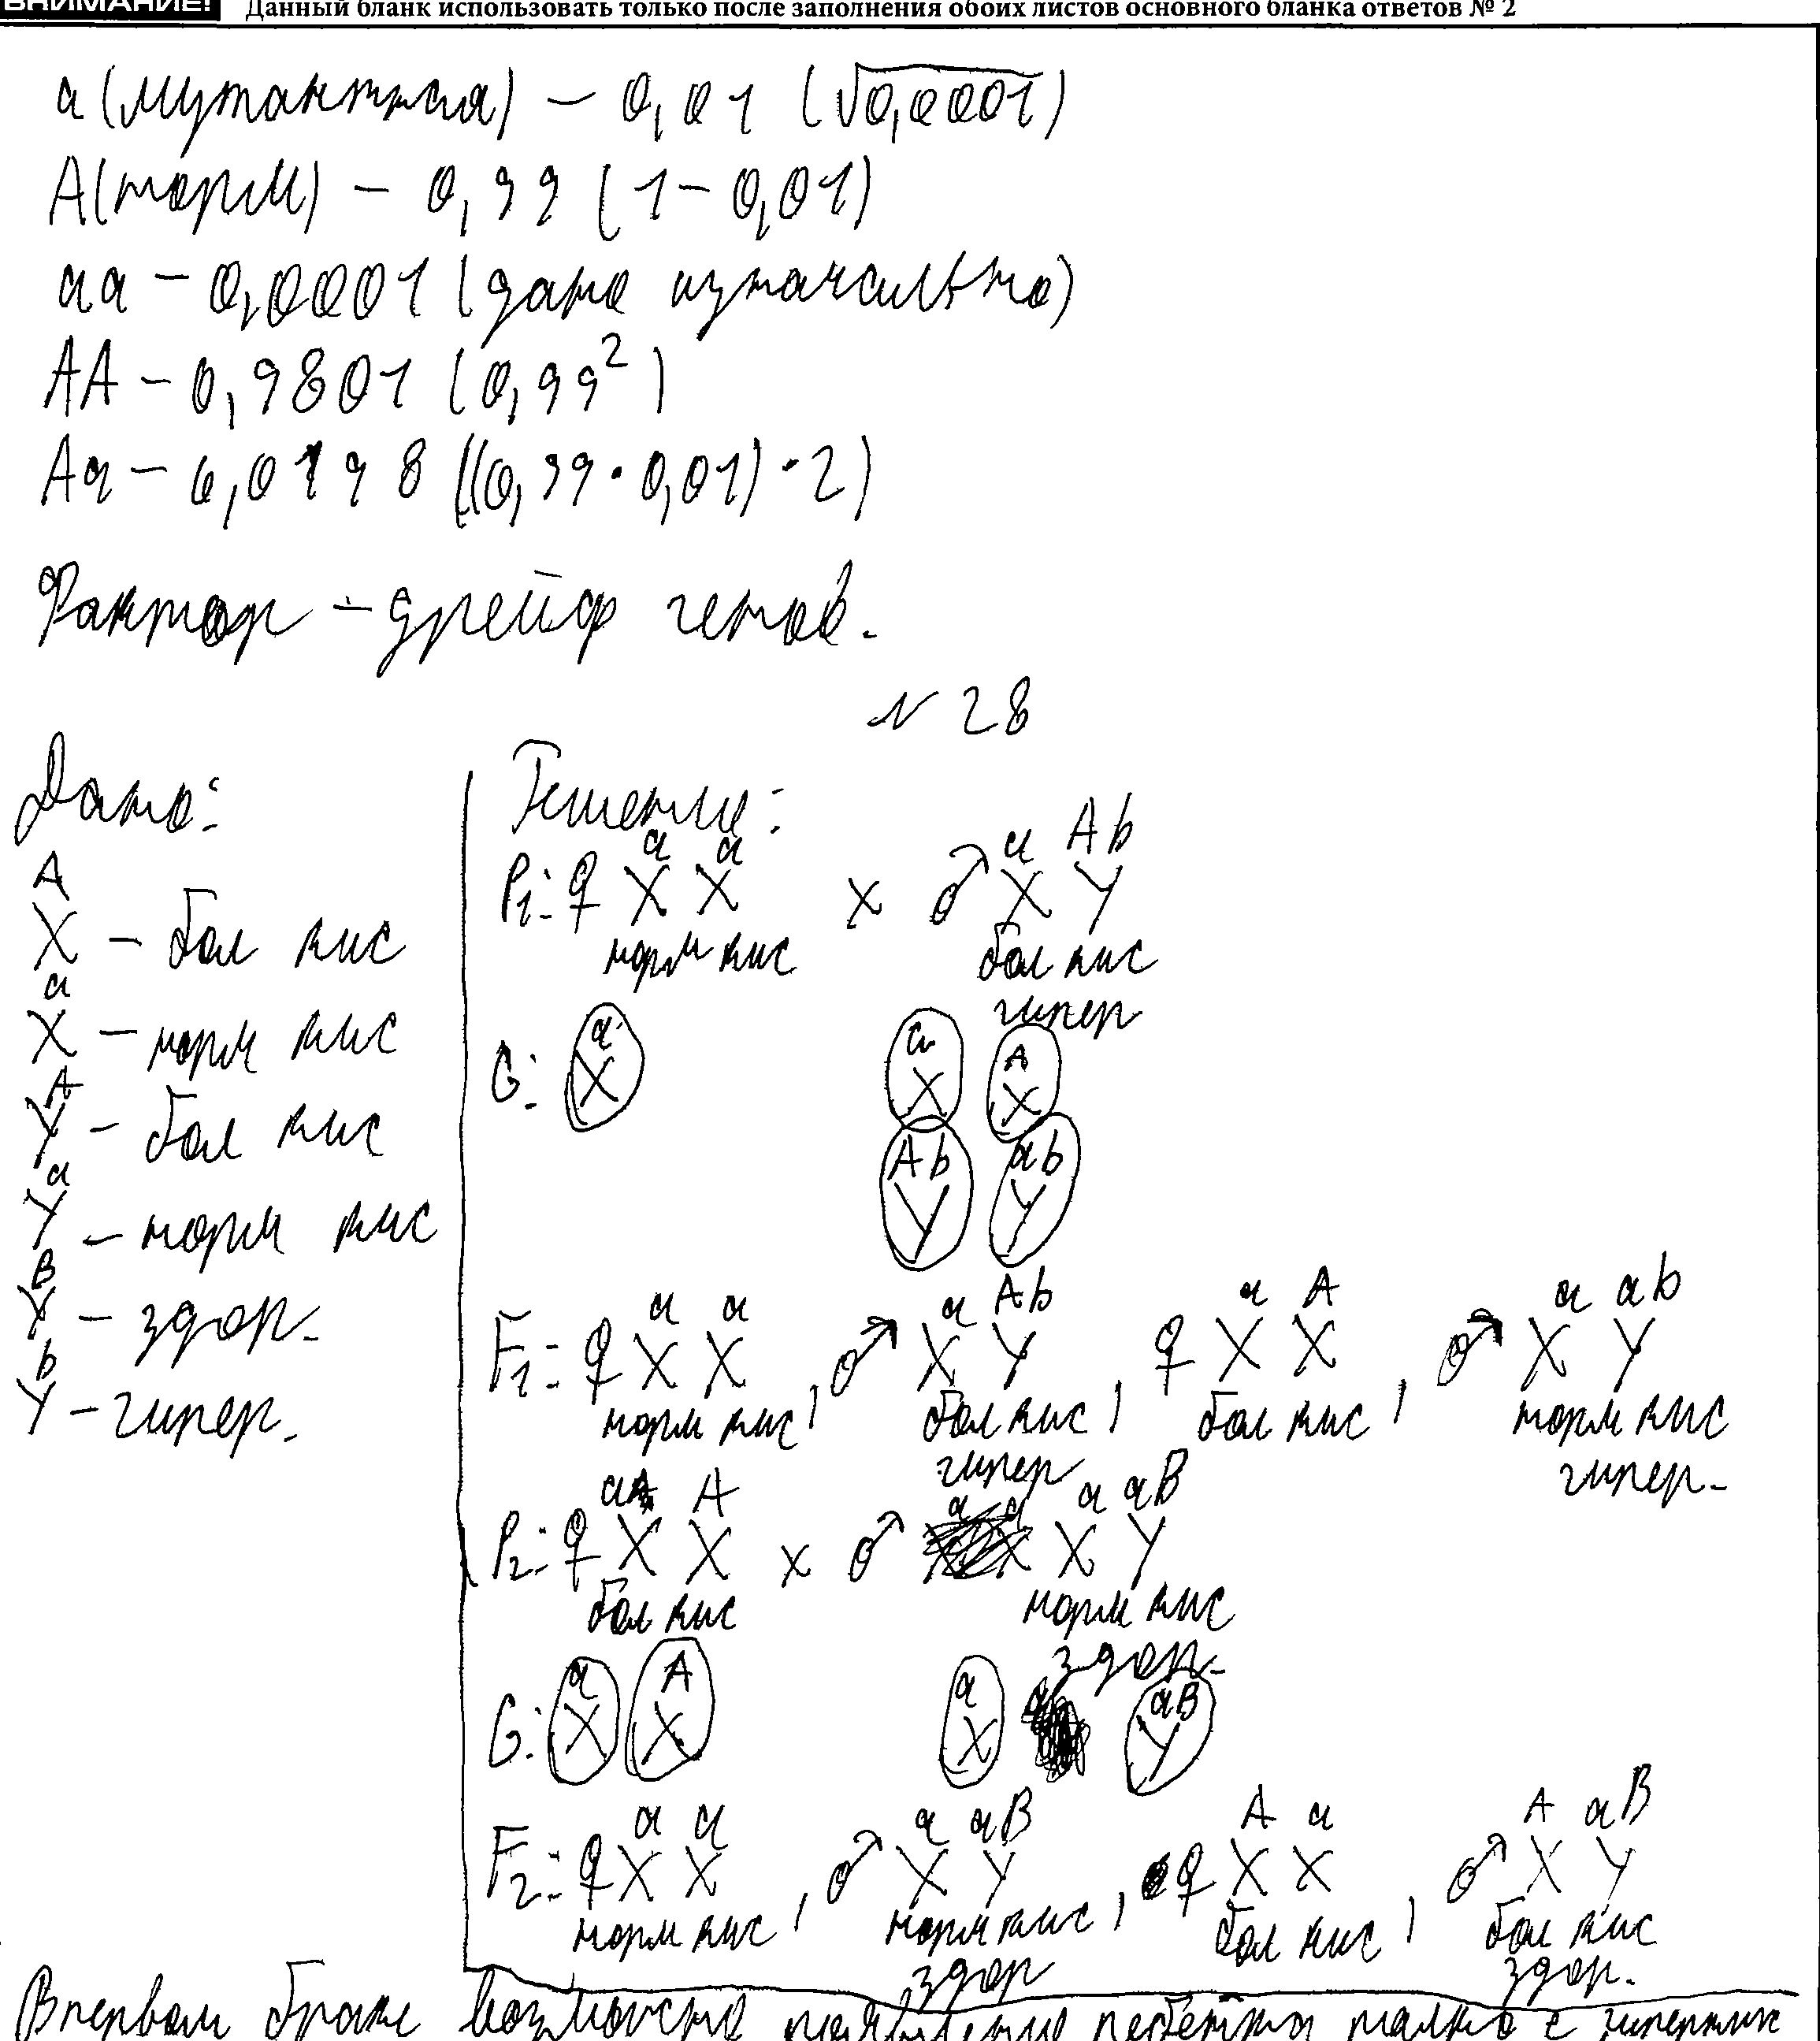 ВНИМАНИЕ! Данный бланк использовать только после заполнения обоих листов основного бланка ответов № 2
a (мутантная) – 0,01 (√0,0001)
A (норм) – 0,99 (1 – 0,01)
aa – 0,0001 (дано изначально)
AA – 0,9801 (0,99²)
Aa – 0,0198 ((0,99 · 0,01) · 2)
Фактор – дрейф генов.
N 28
Дано:
X^A – бол кис
X^a – норм кис
Y^A – бол кис
Y^a – норм кис
X^B – здор.
Y^b – гипер.
Решение:
P1: ♀ X^a X^a x ♂ X^a Y^Ab
норм кис бол кис
гипер
G: X^a X^a X^A
Y^Ab Y^ab
F1: ♀ X^a X^a, ♂ X^a Y^Ab, ♀ X^a X^A, ♂ X^a Y^ab
норм кис, бол кис, бол кис, норм кис
гипер гипер.
P2: ♀ X^a X^A x ♂ X^a Y^aB
бол кис норм кис
здор.
G: X^a X^A X^a Y^aB
F2: ♀ X^a X^a, ♂ X^a Y^aB, ♀ X^A X^a, ♂ X^A Y^aB
норм кис, норм кис, бол кис, бол кис
здор здор.
В первом браке возможно появление ребёнка только с